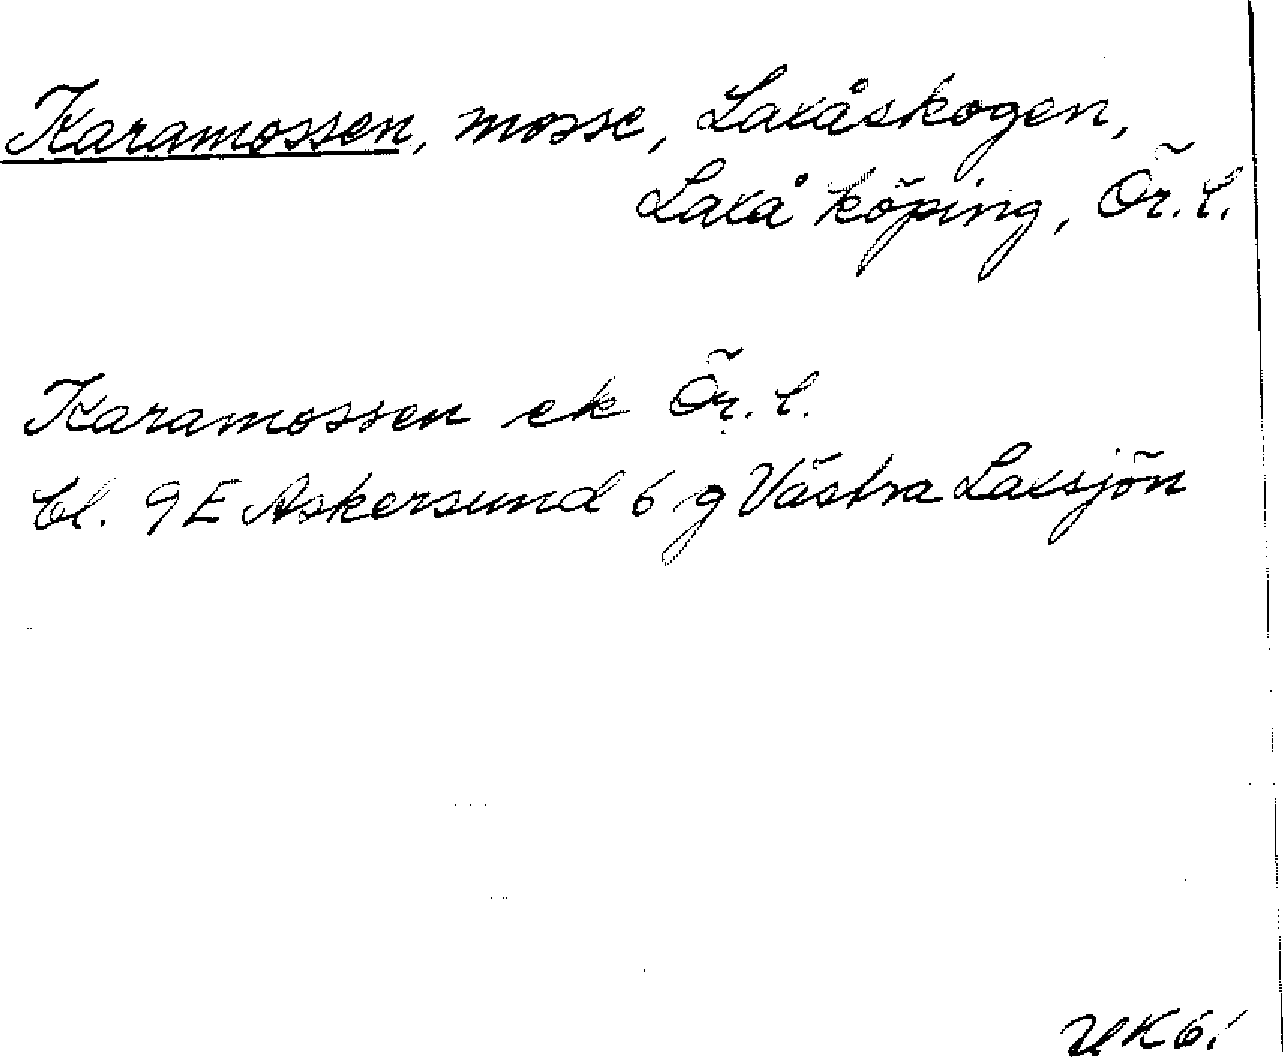 Karamossen, mosse, Laxåskogen,
Laxå köping, Ör. l.
Karamossen ek Ör. l.
bl. 9E Askersund 6 g Västra Laxsjön
UK 61